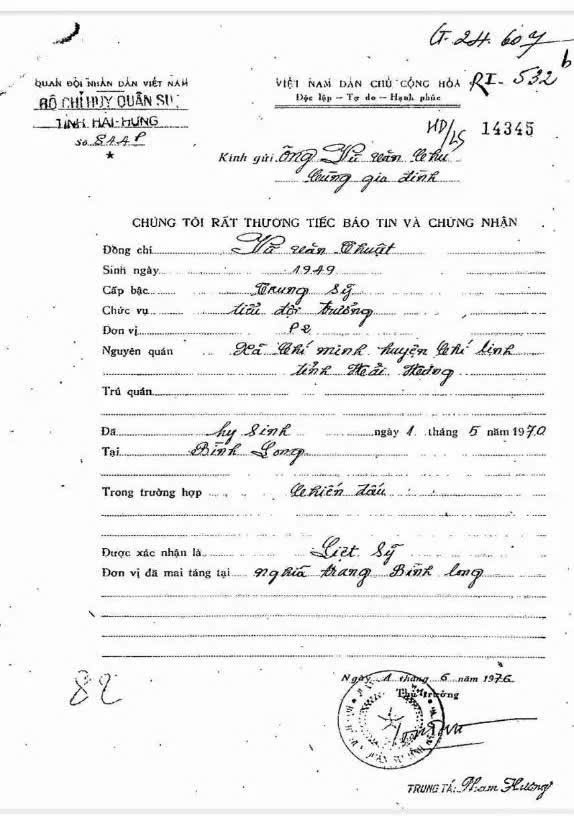 G. 24. 607
b
QUÂN ĐỘI NHÂN DÂN VIỆT NAM
VIỆT NAM DÂN CHỦ CỘNG HÒA
RI - 532
BỘ CHỈ HUY QUÂN SỰ
Độc lập — Tự do — Hạnh phúc
TỈNH HẢI-HƯNG
HD/LS 14345
Số 811 P
Kính gửi Ông Vũ văn Chu
Cùng gia đình
CHÚNG TÔI RẤT THƯƠNG TIẾC BÁO TIN VÀ CHỨNG NHẬN
Đồng chí Vũ văn Thuật
Sinh ngày 1949
Cấp bậc Trung sỹ
Chức vụ tiểu đội trưởng
Đơn vị P2
Nguyên quán Xã Chí minh huyện Chí linh
tỉnh Hải Hưng
Trú quán
Đã hy sinh ngày 1 tháng 5 năm 1970
Tại Bình Long
Trong trường hợp Chiến đấu
Được xác nhận là Liệt sỹ
Đơn vị đã mai táng tại nghĩa trang Bình long
82
Ngày 1 tháng 6 năm 1976
Thủ trưởng
TRUNG TÁ: Phạm Hương